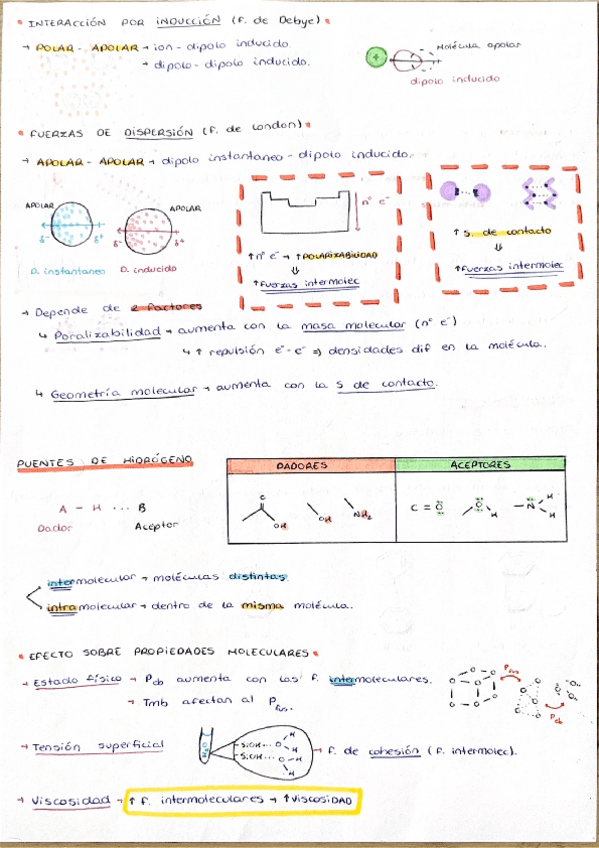 • INTERACCIÓN POR INDUCCIÓN (F. de Debye) •
→ POLAR - APOLAR → ion - dipolo inducido.
→ dipolo - dipolo inducido.
Molécula apolar
dipolo inducido
• FUERZAS DE DISPERSIÓN (F. de London) •
→ APOLAR - APOLAR → dipolo instantaneo - dipolo inducido.
APOLAR
APOLAR
δ- δ+ δ- δ+
D. instantaneo D. inducido
nº e⁻
↑ nº e⁻ → ↑ POLARIZABILIDAD
⇓
↑ Fuerzas intermolec
↑ S. de contacto
⇓
↑ Fuerzas intermolec
→ Depende de 2 factores
↳ Poralizabilidad → aumenta con la masa molecular (nº e⁻)
↳ ↑ repulsión e⁻-e⁻ ⇒ densidades dif en la molécula.
↳ Geometría molecular → aumenta con la S de contacto.
PUENTES DE HIDRÓGENO
A - H ... B
Dador Aceptor
DADORES ACEPTORES
OH OH NH₂
C = O O H N H H
intermolecular → moléculas distintas
intramolecular → dentro de la misma molécula.
• EFECTO SOBRE PROPIEDADES MOLECULARES •
→ Estado físico → Peb aumenta con las F. intermoleculares.
→ Tmb afectan al P fus.
P fus.
Peb
→ Tensión superficial
H₂O
SiOH... O H H
SiOH... O H H
→ F. de cohesión (F. intermolec).
→ Viscosidad → ↑ F. intermoleculares → ↑ VISCOSIDAD